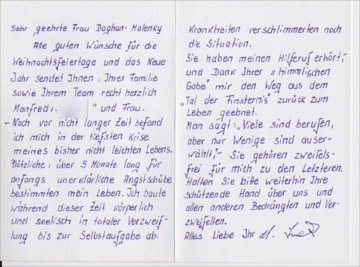 Sehr geehrte Frau Daghan-Malenky
Alle guten Wünsche für die
Weihnachtsfeiertage und das Neue
Jahr sendet Ihnen, Ihrer Familie
sowie Ihrem Team recht herzlich
Manfred, und Frau.
- Noch vor nicht langer Zeit befand
ich mich in der tiefsten Krise
meines bisher nicht leichten Lebens.
Plötzliche, über 5 Monate lang für
anfangs unerklärliche Angstschübe
bestimmten mein Leben. Ich baute
während dieser Zeit körperlich
und seelisch in totaler Verzweif-
lung bis zur Selbstaufgabe ab.
Krankheiten verschlimmerten noch
die Situation.
Sie haben meinen Hilferuf erhört,
und Dank Ihrer "himmlischen
Gabe" mir den Weg aus dem
"Tal der Finsternis" zurück zum
Leben geebnet.
Man sagt: "Viele sind berufen,
aber nur Wenige sind auser-
wählt," - Sie gehören zweifels-
frei für mich zu den Letzteren.
Halten Sie bitte weiterhin Ihre
schützende Hand über uns und
allen anderen Bedrängten und Ver-
zweifelten.
Alles Liebe Ihr M.